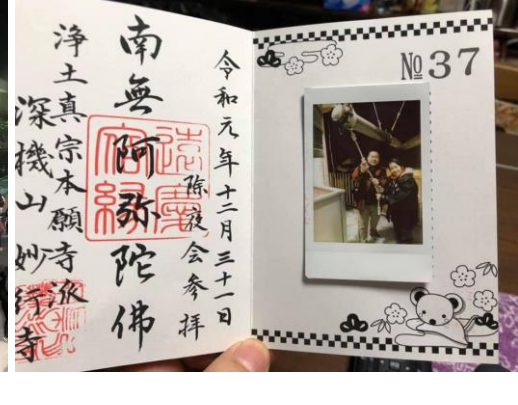 令和元年十二月三十一日
除夜会参拝
南無阿弥陀佛
遠慶宿縁
浄土真宗本願寺派
深機山妙行寺
№37